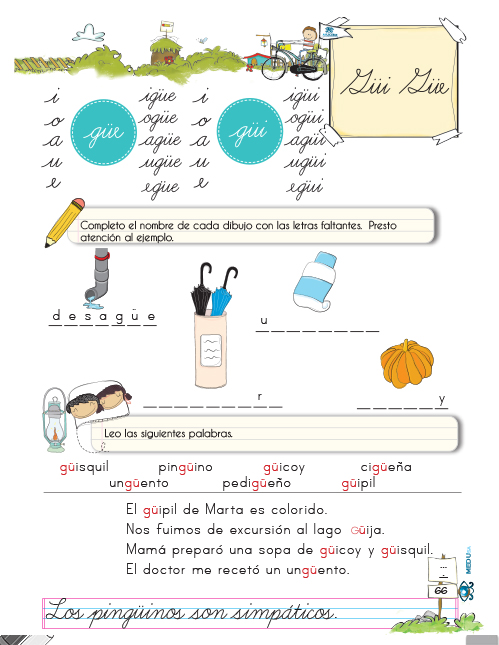 Güi Güe
i igüe i igüi
o ogüe o ogüi
a agüe a agüi
u ugüe u ugüi
e egüe e egüi
güe güi
Completo el nombre de cada dibujo con las letras faltantes. Presto
atención al ejemplo.
d e s a g ü e
u
r
y
Leo las siguientes palabras.
güisquil pingüino güicoy cigüeña
ungüento pedigüeño güipil
El güipil de Marta es colorido.
Nos fuimos de excursión al lago Güija.
Mamá preparó una sopa de güicoy y güisquil.
El doctor me recetó un ungüento.
66
Los pingüinos son simpáticos.